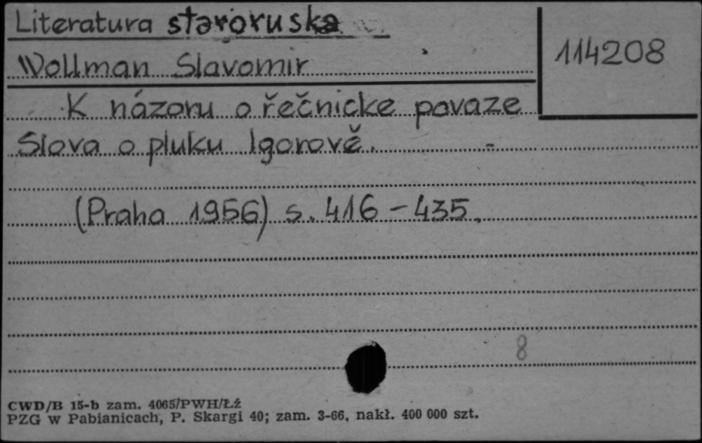 Literatura staroruska
114208
Wollman Slavomir
K názoru o řečnicke povaze
Slova o pluku Igorově.
(Praha 1956) s. 416-435.
8
CWD/B 15-b zam. 4065/PWH/Łź
PZG w Pabianicach, P. Skargi 40; zam. 3-66, nakł. 400 000 szt.